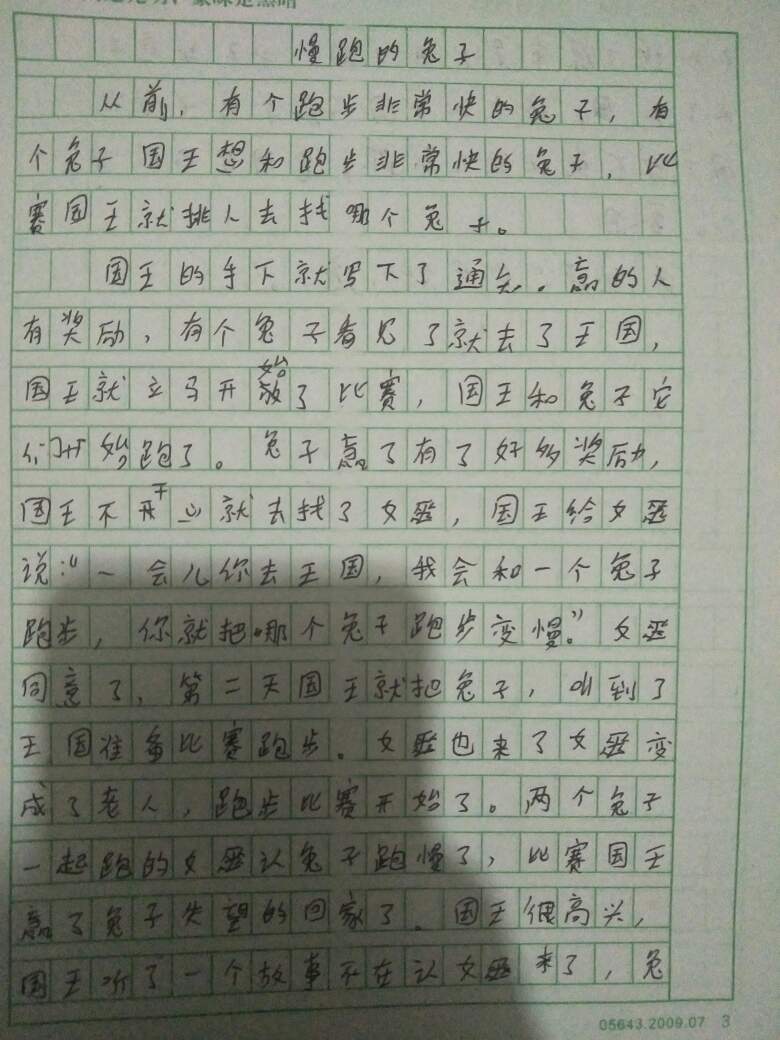 慢跑的兔子
从前,有个跑步非常快的兔子,有
个兔子国王想和跑步非常快的兔子,比
赛国王就挑人去找哪个兔子。
国王的手下就写下了通知。赢的人
有奖励,有个兔子看见了就去了王国,
国王就立马开始了比赛,国王和兔子它
们开始跑了。兔子赢了有了好多奖励,
国王不开心就去找了女巫,国王给女巫
说:“一会儿你去王国,我会和一个兔子
跑步,你就把哪个兔子跑步变慢。”女巫
同意了,第二天国王就把兔子,叫到了
王国准备比赛跑步.女巫也来了女巫变
成了老人,跑步比赛开始了。两个兔子
一起跑的女巫认兔子跑慢了,比赛国王
赢了兔子失望的回家了.国王很高兴,
国王听了一个故事不在认女巫来了,兔
05643.2009.07 3